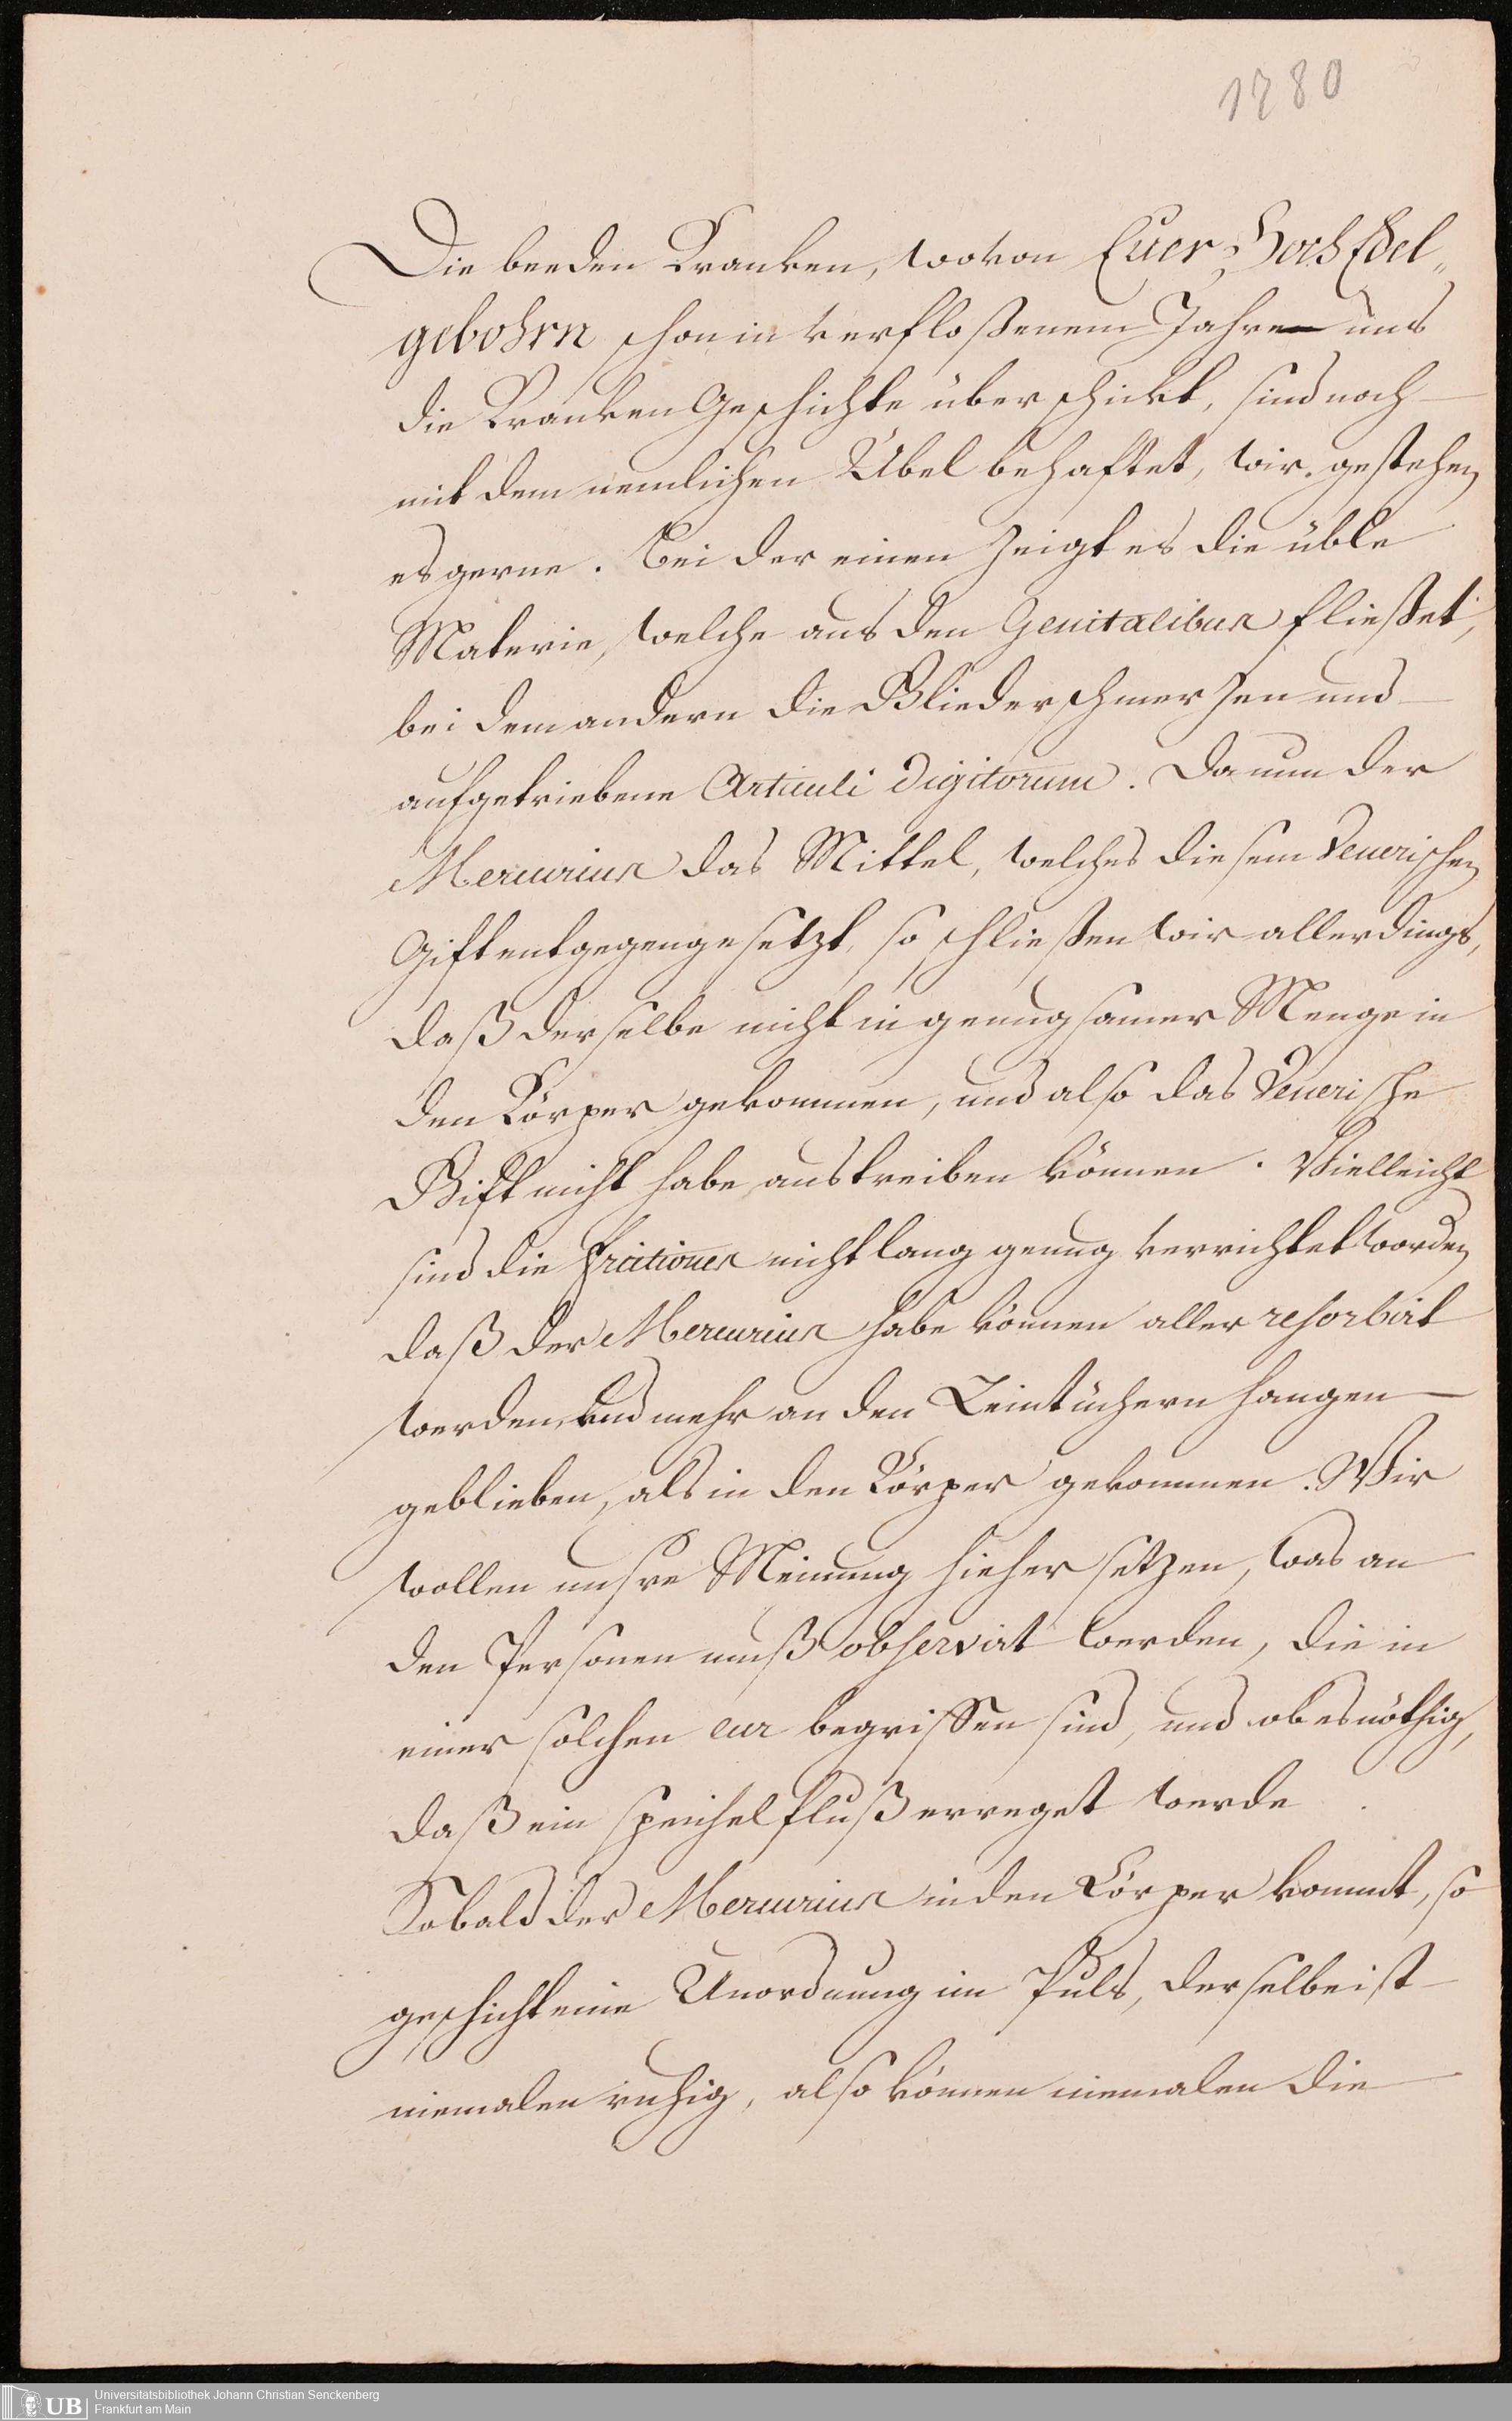 1780
Die beeden Kranken, wovon Euer HochEdel„
gebohrn schon in verfloßenem Jahre uns
die Kranken Geschichte überschickt, sind noch
mit dem nemlichen Übel behaftet, wir gestehen
es gerne. Bei der einen zeigt es die üble
Materie, welche aus den Genitalibus fließet,
bei dem andern die Gliederschmerzen und
aufgetriebene Articuli Digitorum. Da nun der
Mercurius das Mittel, welches diesem Venerischen
Gift entgegengesetzt, so schließen wir allerdings,
daß derselbe nicht in genugsamer Menge in
den Körper gekommen, und also das Venerische
Gift nicht habe austreiben können. Vielleicht
sind die frictiones nicht lang genug verrichtet worden
daß der Mercurius habe können aller resorbirt
werden, und mehr an den Leintüchern hangen
geblieben, als in den Körper gekommen. Wir
wollen unsre Meinung hieher setzen, was an
den Personen muß observirt werden, die in
einer solchen cur begriffen sind, und ob es nöthig,
daß ein speichelfluß erreget werde.
Sobald der Mercurius in den Körper kommt, so
geschicht eine Unordnung im Puls, derselbe ist
niemalen ruhig, also können niemalen die
UB
Universitätsbibliothek Johann Christian Senckenberg
Frankfurt am Main